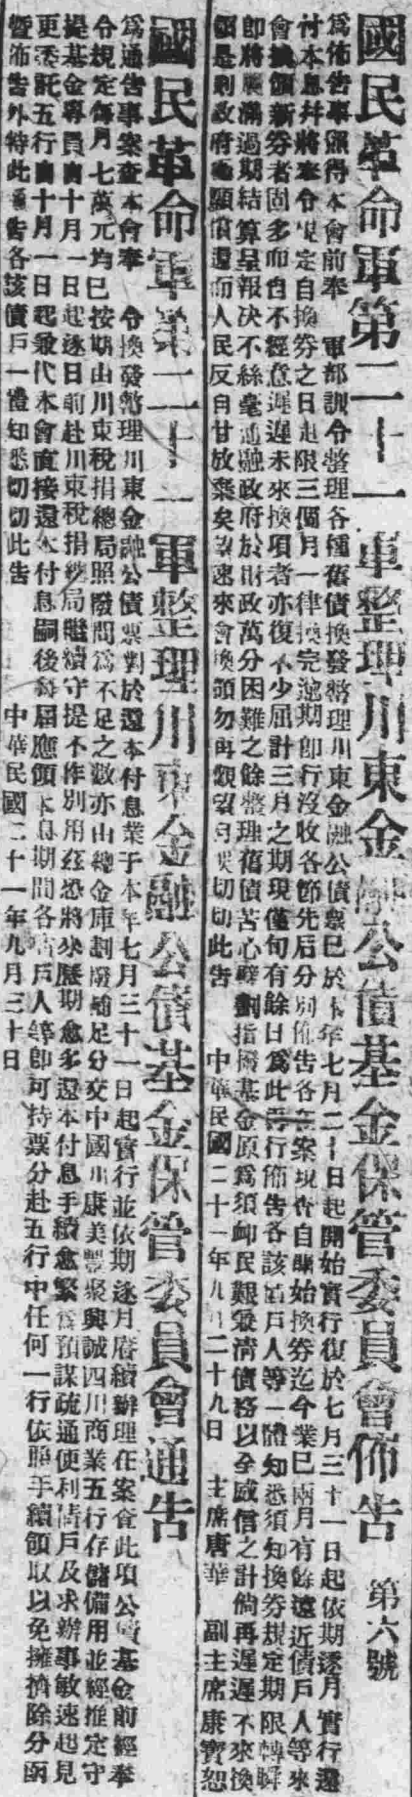 國民革命軍第二十一軍整理川東金融公債基金保管委員會佈告 第六號
爲佈告事照得本會前奉 軍部訓令整理各種舊債換發整理川東金融公債票已於本年七月二十日起開始實行復於七月三十一日起依期逐月實行還
付本息并將奉令規定自換券之日起限三個月一律換完逾期即行沒收各節先后分別佈告各在案現查自開始換券迄今業已兩月有餘遠近債戶人等來
會換領新券者固多而自不經意遲遲未來換項者亦復不少屈計三月之期現僅旬有餘日爲此再行佈告各該債戶人等一體知悉須知換券規定期限轉瞬
即將屆滿過期結算呈報决不絲毫通融政府於財政萬分困難之餘整理舊債苦心擘劃指撥基金原爲須卹民艱淸債務以全威信之計倘再遲遲不來換
領是則政府願償還而人民反自甘放棄矣速來會換領勿再觀望自悞切切此告 中華民國二十一年九月二十九日 主席唐華 副主席康寶恕
國民革命軍第二十一軍整理川東金融公債基金保管委員會通告
爲通告事案查本會奉 令換發整理川東金融公債票對於還本付息業于本年七月三十一日起實行並依期逐月賡續辦理在案查此項公債基金前經奉
令規定每月七萬元均已按期由川東稅捐總局照撥間爲不足之數亦由總金庫劃撥補足分交中國川康美豐聚興誠四川商業五行存儲備用並經推定守
提基金專員由十月一日起逐日前赴川東稅捐總局繼續守提不作別用茲恐將來歷期愈多還本付息手續愈緊爲預謀疏通便利債戶及求辦事敏速起見
更委託五行由十月一日起兼代本會直接還本付息嗣後每屆應領本息期間各債戶人等即可持票分赴五行中任何一行依照手續領取以免擁擠除分函
暨佈告外特此通告各該債戶一體知悉切切此告 中華民國二十一年九月三十日